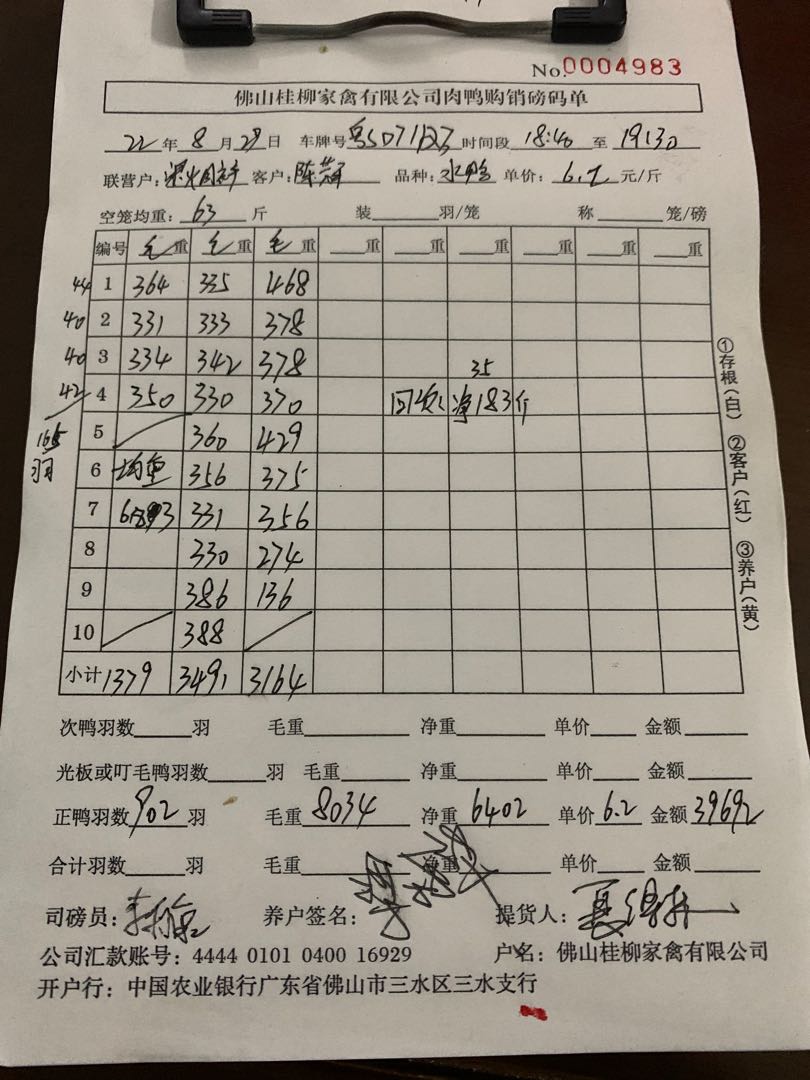 No.0004983
佛山桂柳家禽有限公司肉鸭购销磅码单
22 年 8 月 29 日 车牌号 粤S071 时间段 18:40 至 19:30
联营户: 客户:陈 品种:水鸭 单价:6.2 元/斤
空笼均重:63 斤 装 羽/笼 称 笼/磅
编号 毛重 毛重 毛重 重 重 重 重 重
44 1 364 335 468
40 2 331 333 378
40 3 334 342 378 35
42 4 350 330 370 净183斤
165羽 5 360 429
6 均重 356 375
7 331 356
8 330 274
9 386 136
10 388
小计 1379 3491 3164
①存根(白) ②客户(红) ③养户(黄)
次鸭羽数 羽 毛重 净重 单价 金额
光板或叮毛鸭羽数 羽 毛重 净重 单价 金额
正鸭羽数 902 羽 毛重 8034 净重 6402 单价 6.2 金额 39692
合计羽数 羽 毛重 净重 单价 金额
司磅员: 养户签名: 提货人:
公司汇款账号:4444 0101 0400 16929 户名:佛山桂柳家禽有限公司
开户行:中国农业银行广东省佛山市三水区三水支行